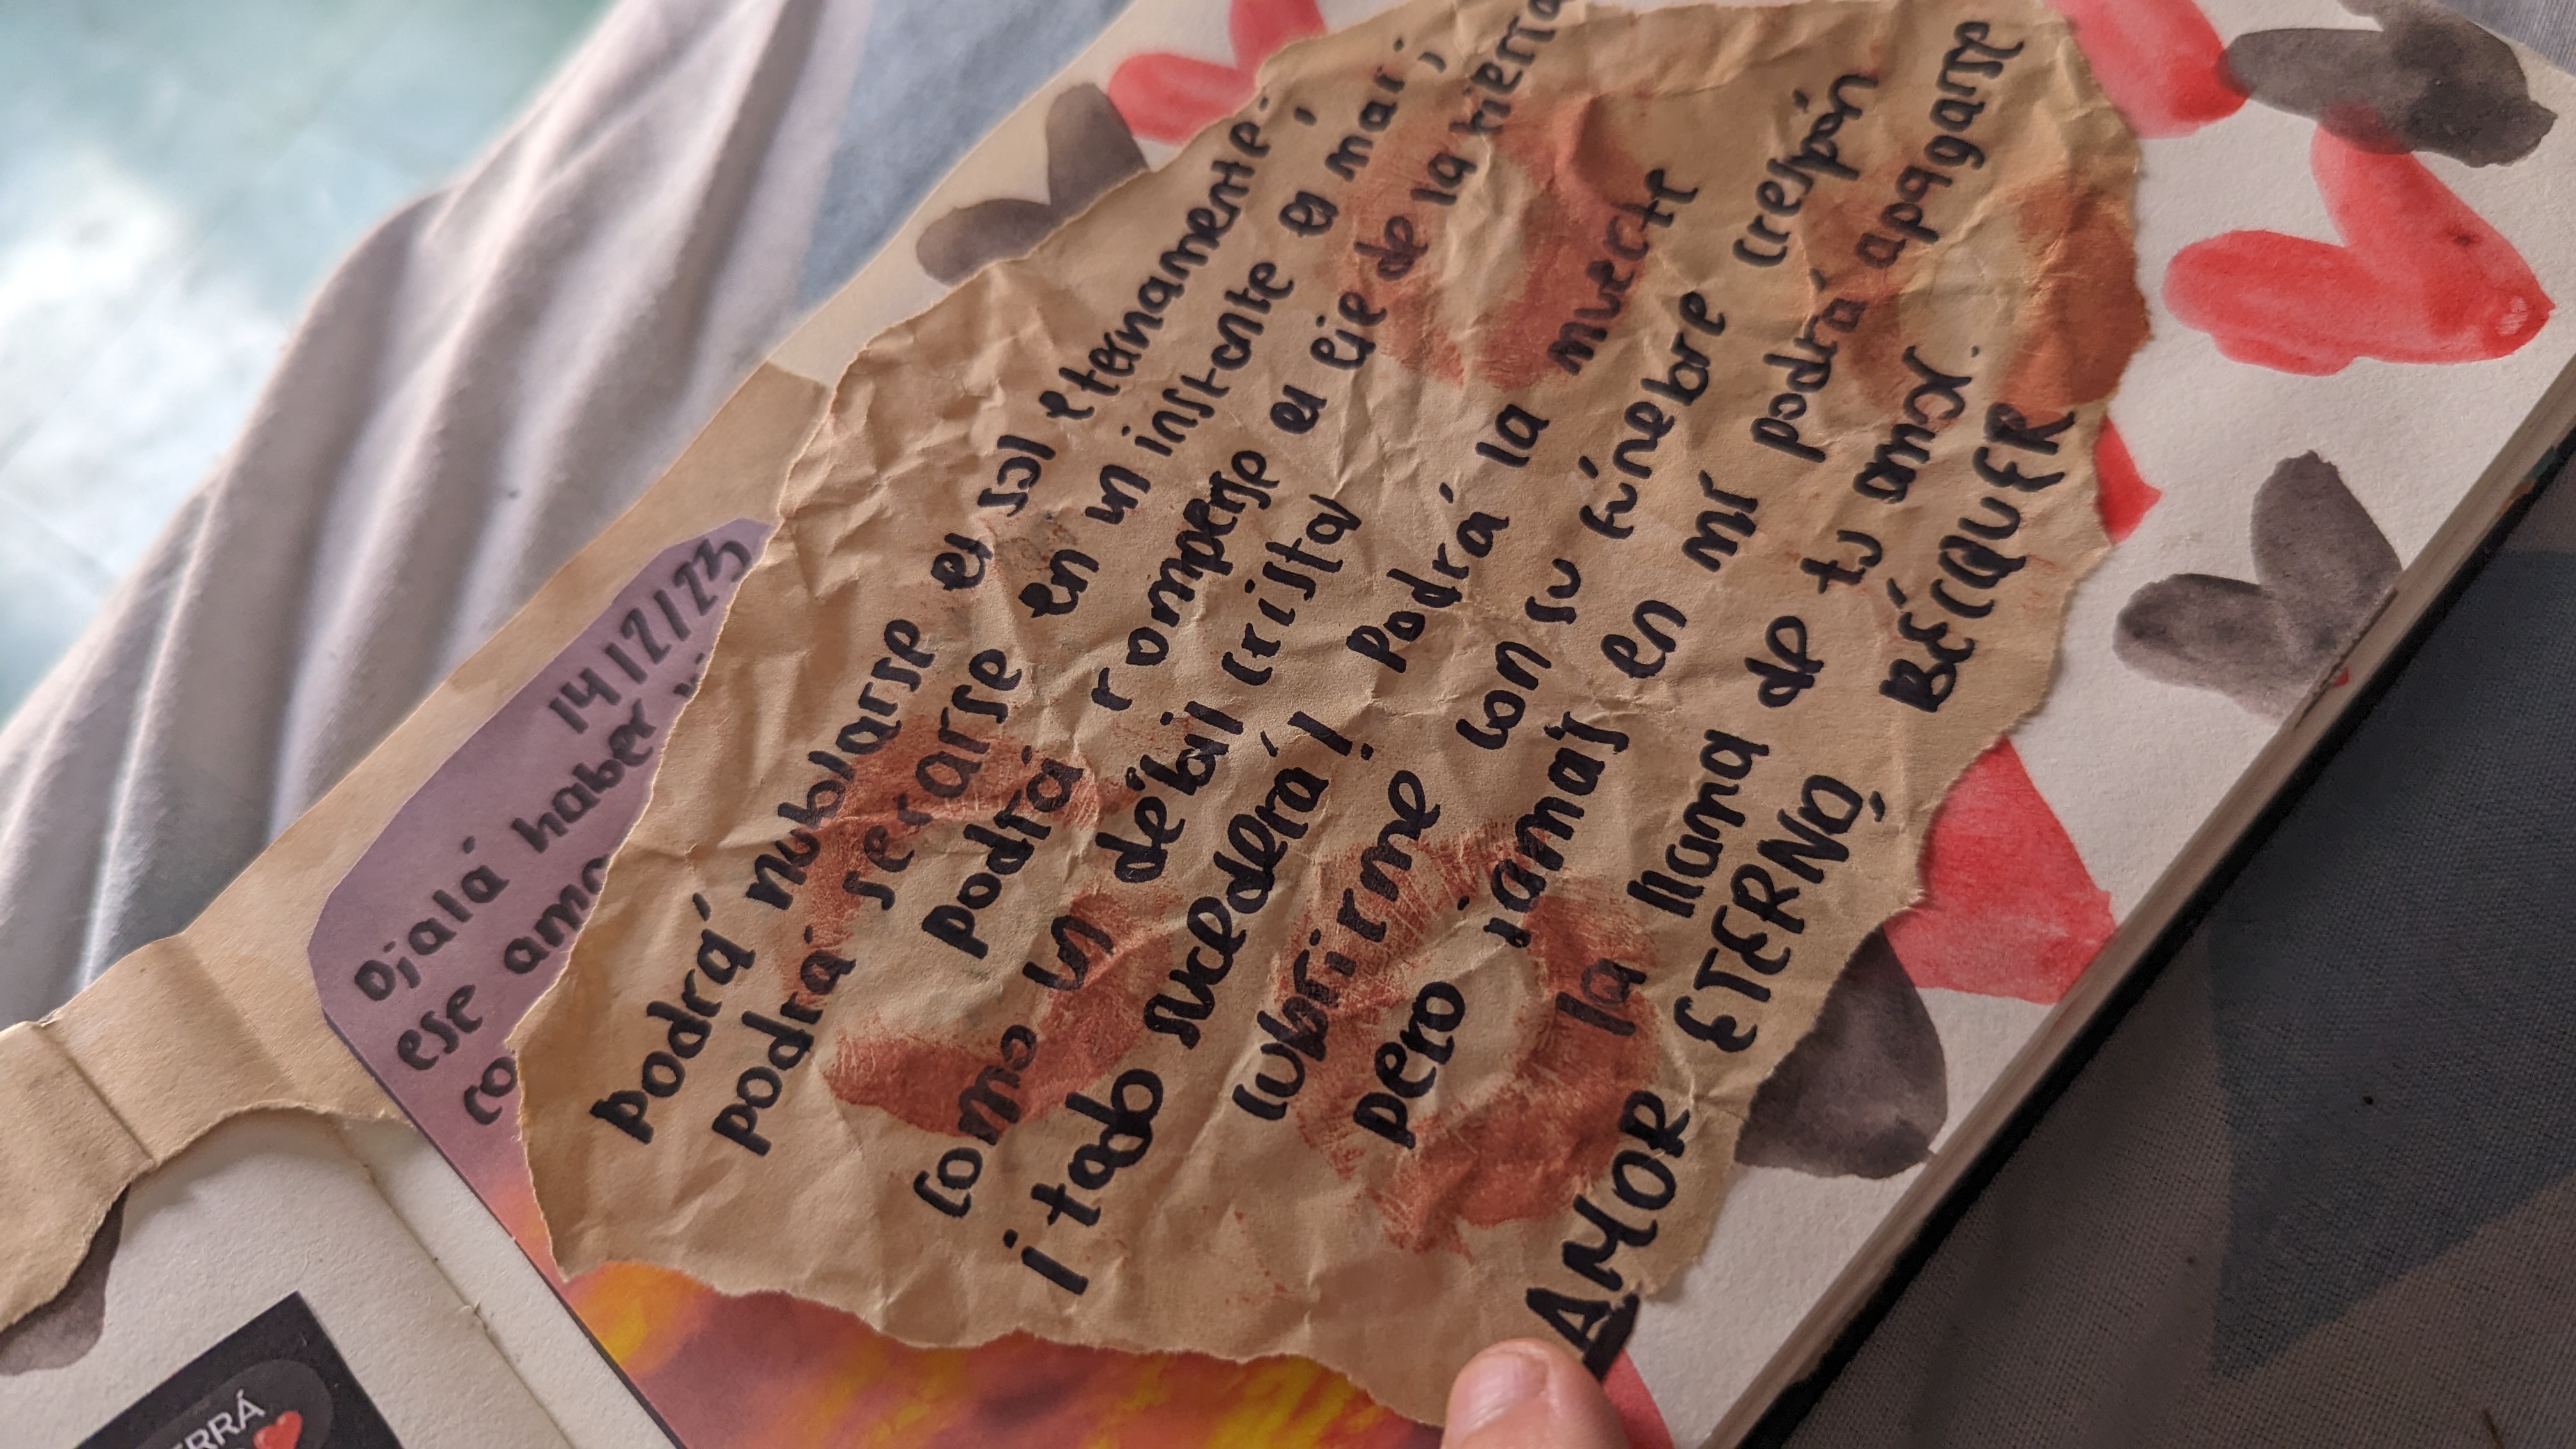 14/2/23
Ojalá haber
ese amo
co
podrá nublarse el sol eternamente;
podrá secarse en un instante el mar;
podrá romperse el eje de la tierra
como un débil cristal
¡todo sucederá! Podrá la muerte
cubrirme con su fúnebre crespón
pero jamás en mí podrá apagarse
la llama de tu amor.
AMOR ETERNO, BÉCQUER
ERRÁ